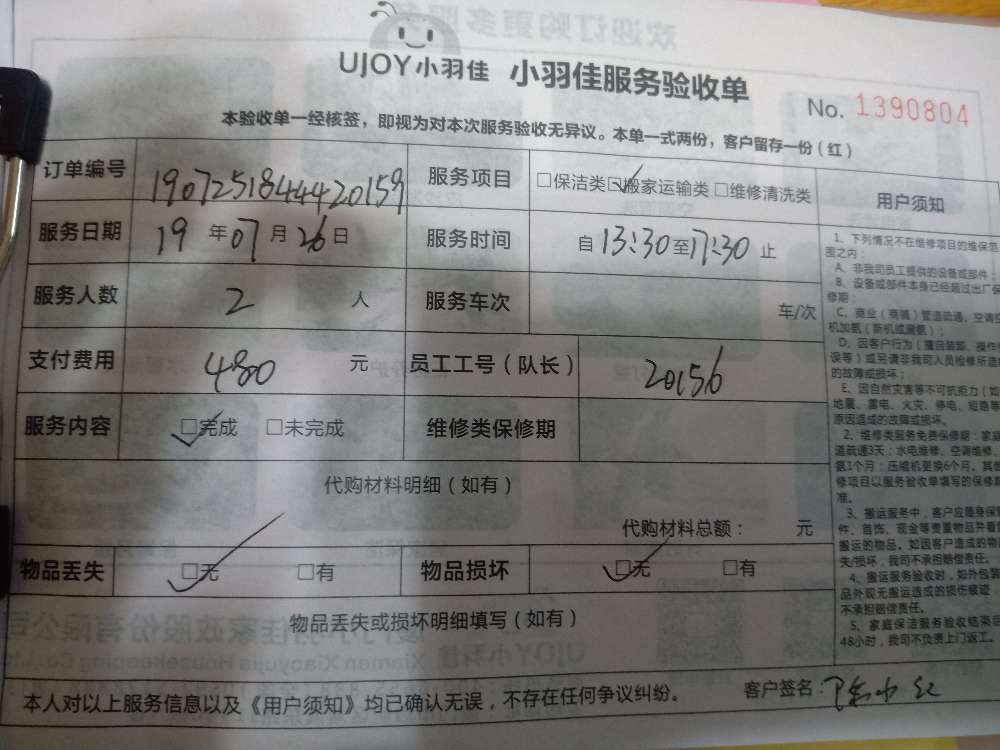 UJOY小羽佳 小羽佳服务验收单
No. 1390804
本验收单一经核签，即视为对本次服务验收无异议。本单一式两份，客户留存一份（红）
订单编号 19072518444420159 服务项目 □保洁类 ☑搬家运输类 □维修清洗类 用户须知
服务日期 19 年 07 月 26 日 服务时间 自 13:30 至 17:30 止
服务人数 2 人 服务车次 车/次
支付费用 480 元 员工工号（队长） 20156
服务内容 ☑完成 □未完成 维修类保修期
代购材料明细（如有）
代购材料总额： 元
物品丢失 ☑无 □有 物品损坏 ☑无 □有
物品丢失或损坏明细填写（如有）
本人对以上服务信息以及《用户须知》均已确认无误，不存在任何争议纠纷。 客户签名：
1、下列情况不在维修项目的维保范
围之内：
A、非我司员工提供的设备或部件；
B、设备或部件本身已经超过出厂保
修期；
C、商业（商铺）管道疏通，空调
机加氨（新机或漏氨）；
D、因客户行为（擅自装卸、操作
误等）或另请非我司人员检修所造
的故障或损坏；
E、因自然灾害等不可抗拒力（如
地震、雷电、火灾、停电、短路等
原因造成的故障或损坏。
2、维修类服务免费保修期：家庭
道疏通3天；水电维修、空调维修、
氨1个月；压缩机更换6个月。其
修项目以服务验收单填写的保修
准。
3、搬运服务中，客户应随身保
件、首饰、现金等贵重物品并看
搬运的物品。如因客户造成的物
失/损坏，我司不承担赔偿责任。
4、搬运服务验收时，如外包装
品外观无搬运造成的损伤痕迹
不承担赔偿责任。
5、家庭保洁服务验收结束后
48小时，我司不负责上门返工。